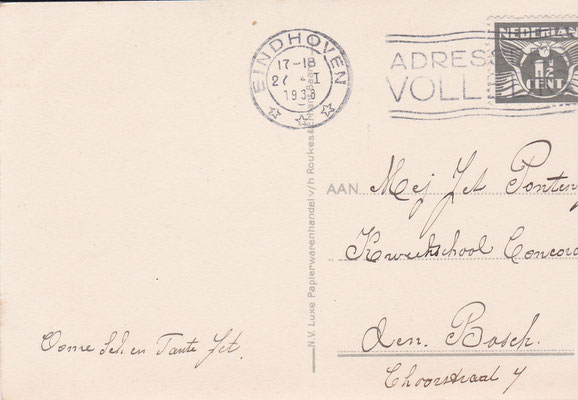 EINDHOVEN
17-18
27 I
193
ADRES
VOLL
NEDERLAND
1½
CENT
N.V. Luxe Papierwarenhandel v/h Roukes &
AAN
Mej Jet Ponten
Kweekschool Concord
den Bosch.
Choorstraat 4
Oome Sch en Tante Jet.